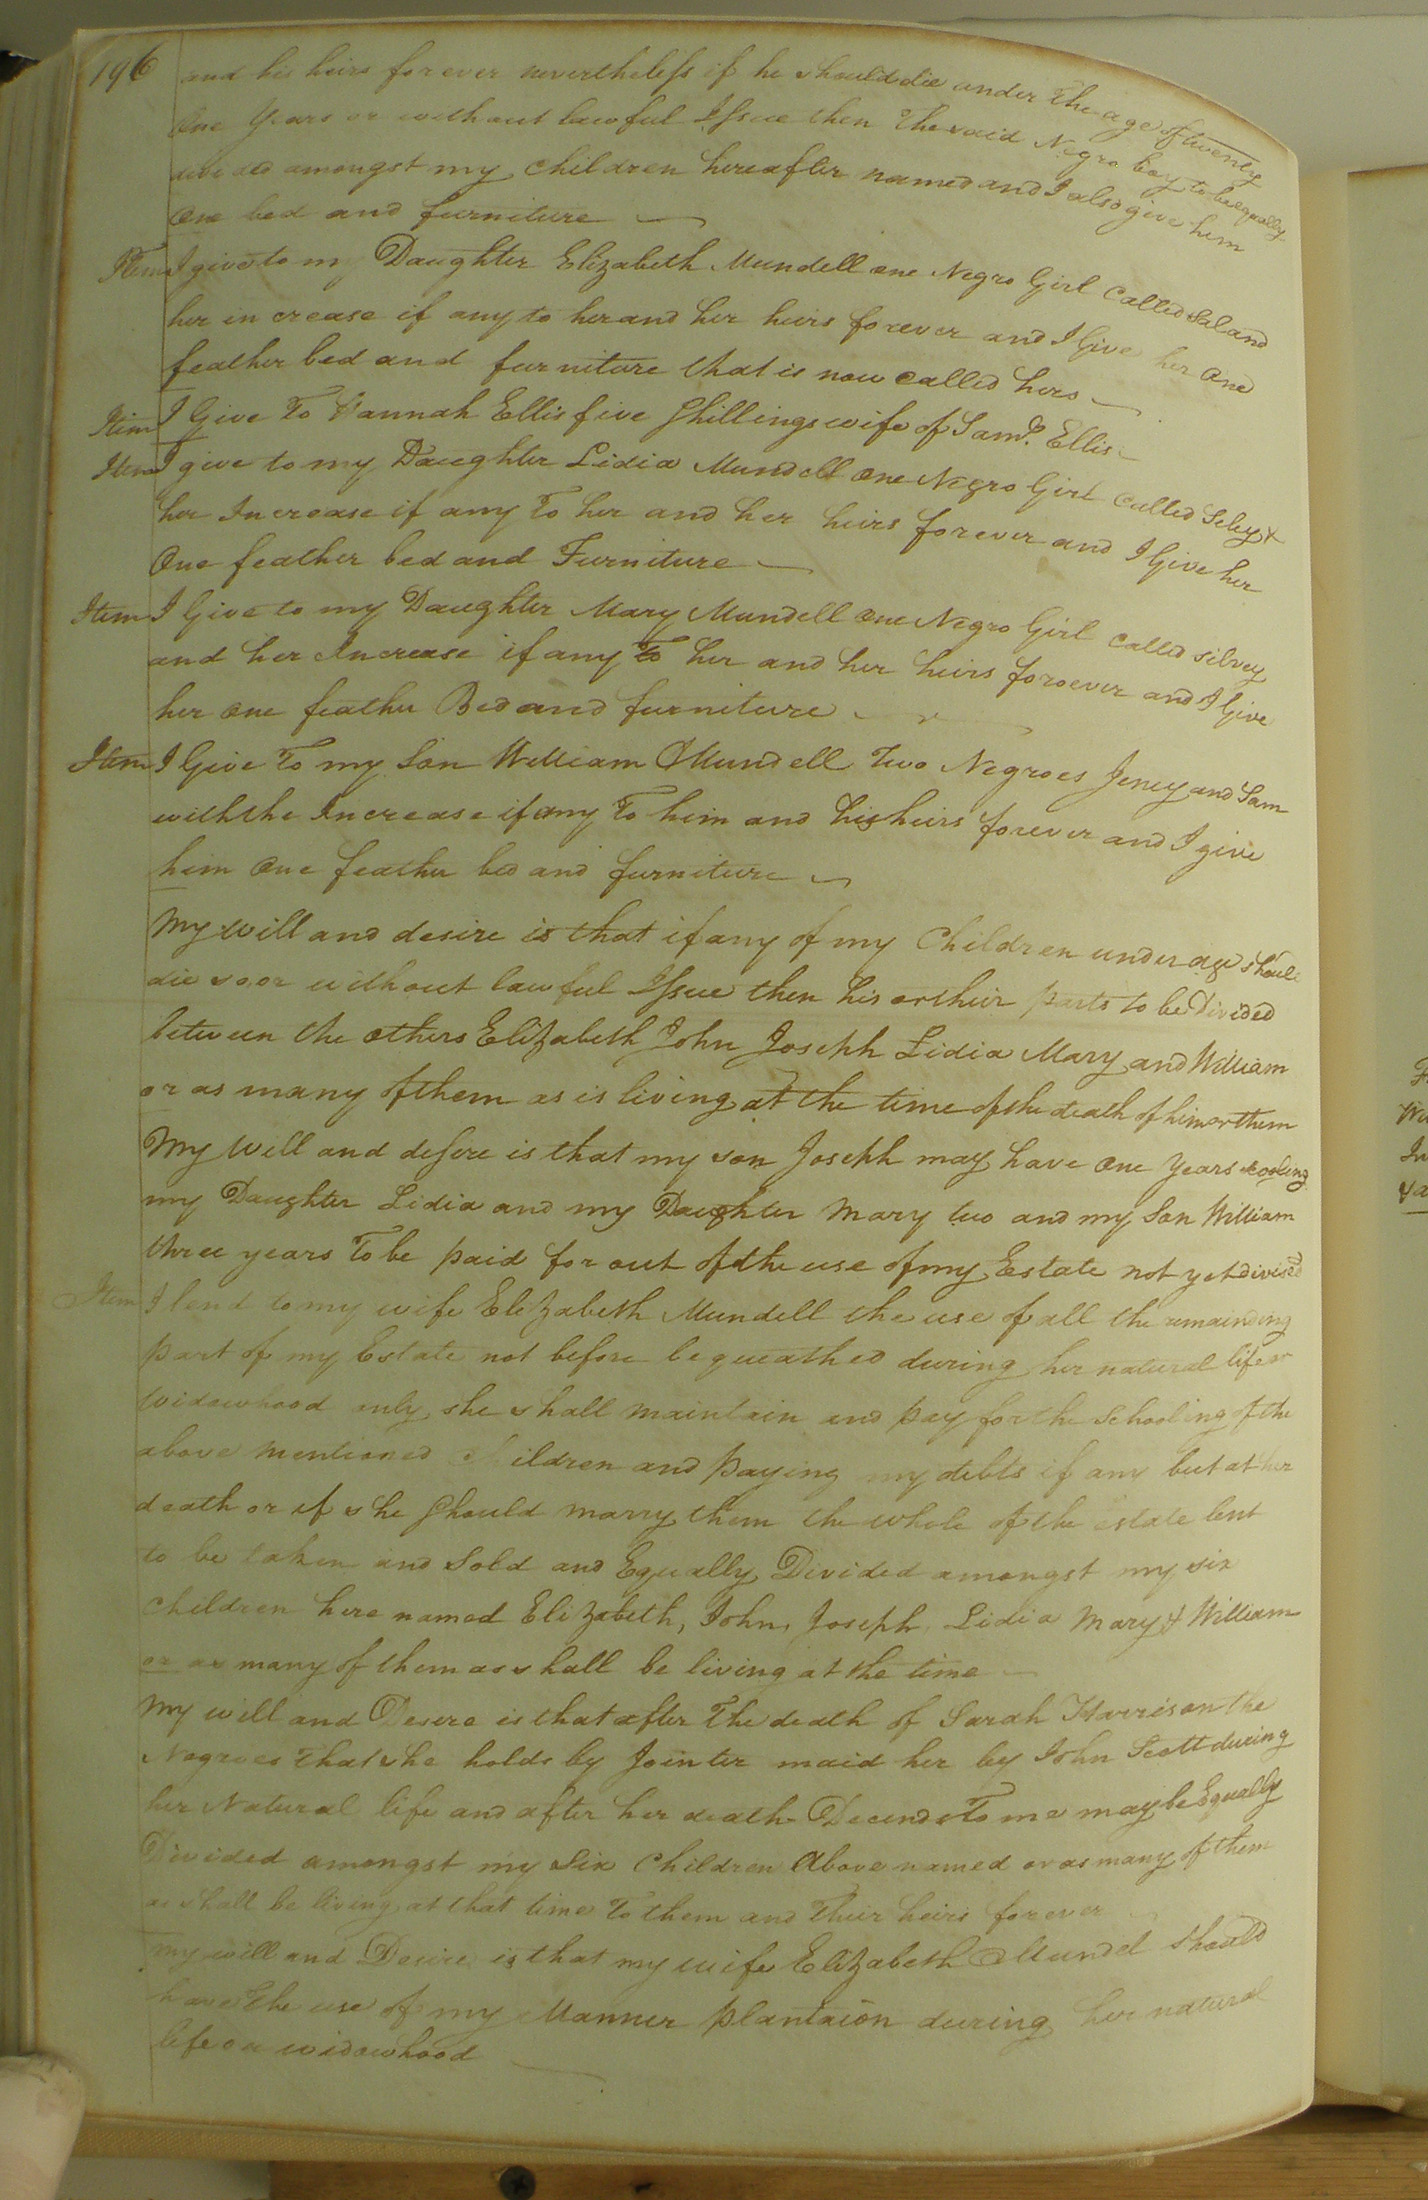 196 and his heirs forever nevertheless if he should die under The age of twenty
One Years or without lawful Issue then The said Negro boy to be equally
devided amongst my children hereafter named and I also give him
One bed and furniture
Item I give to my Daughter Elizabeth Mundell one Negro Girl Called Sal and
her in crease if any to her and her heirs forever and I Give her one
feather bed and furniture that is now called hers
Item I Give To Hannah Ellis five Shillings wife of Saml. Ellis
Item I give to my Daughter Lidia Mundell one Negro Girl Called Seley &
her Increase if any To her and her heirs forever and I Give her
One feather bed and Furniture
Item I Give to my Daughter Mary Mundell one Negro Girl Called silvey
and her Increase if any To her and her heirs foroever and I Give
her one feather Bed and furniture
Item I Give To my Son William Mundell Two Negroes Jeney and Sam
with the Increase if any To him and his heirs forever and I give
him One feather bed and furniture
My will and desire is that if any of my Children under age shoul
die so or without lawful Issue then his or their parts to be Divided
between the others Elizabeth John Joseph Lidia Mary and William
or as many of them as is living at the time of the death of him or them
My Will and desire is that my son Joseph may have one Years scooling
my Daughter Lidia and my Daughter Mary two and my Son William
three years To be paid for out of the use of my Estate not yet divised
Item I lend to my wife Elizabeth Mundell the use of all the remainding
part of my Estate not before bequeathed during her natural life or
widowhood only she shall maintain and pay for the Schooling of the
above mentioned children and paying my debts if any but at her
death or if she should marry them the whole of the estate lent
to be taken and Sold and Equally Divided amongst my six
Children here named Elizabeth, John, Joseph, Lidia Mary & William
or as many of them as shall be living at the time
My will and Desire is that after The death of Sarah Harrison the
Negroes that she holds by Jointer maid her by John Scott during
her Natural life and after her death Decends To me may be Equally
Divided amongst my Six Children Above named or as many of them
as shall be living at that time To them and Their heirs forever
my will and Desire is that my wife Elizabeth Mundel should
have The use of my Manner plantaion during her natural
life or widowhood